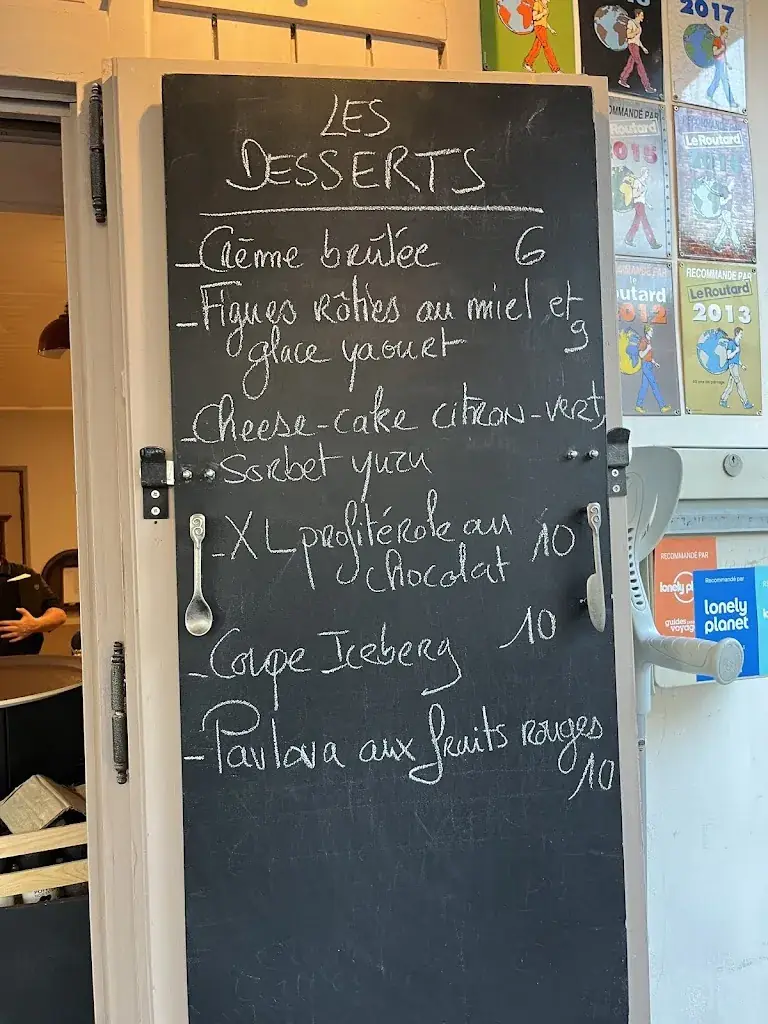 LES
DESSERTS
- Crème brûlée 6
- Figues rôties au miel et
glace yaourt 9
- Cheese-cake citron-vert,
sorbet yuzu
- XL profitérole au 10
chocolat
- Coupe Iceberg 10
- Pavlova aux fruits rouges
10
2017
COMMANDÉ PAR
Routard
2015
Le Routard
RECOMMANDÉ PAR
utard
2012
RECOMMANDÉ PAR
Le Routard
2013
RECOMMANDÉ PAR
lonely pl
guides
voyag
Recommandé par
lonely
planet